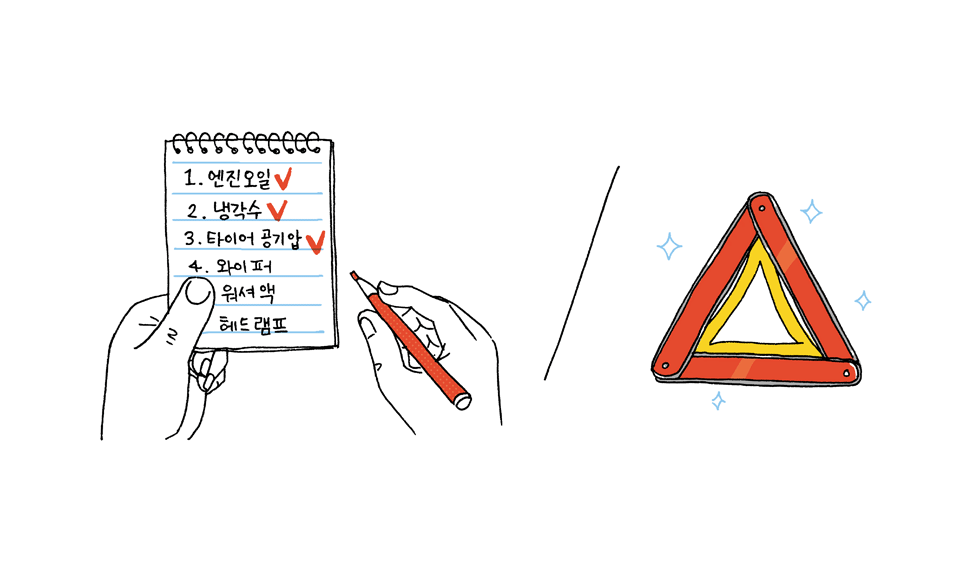 1. 엔진오일
2. 냉각수
3. 타이어 공기압
4. 와이퍼
워셔액
헤드램프